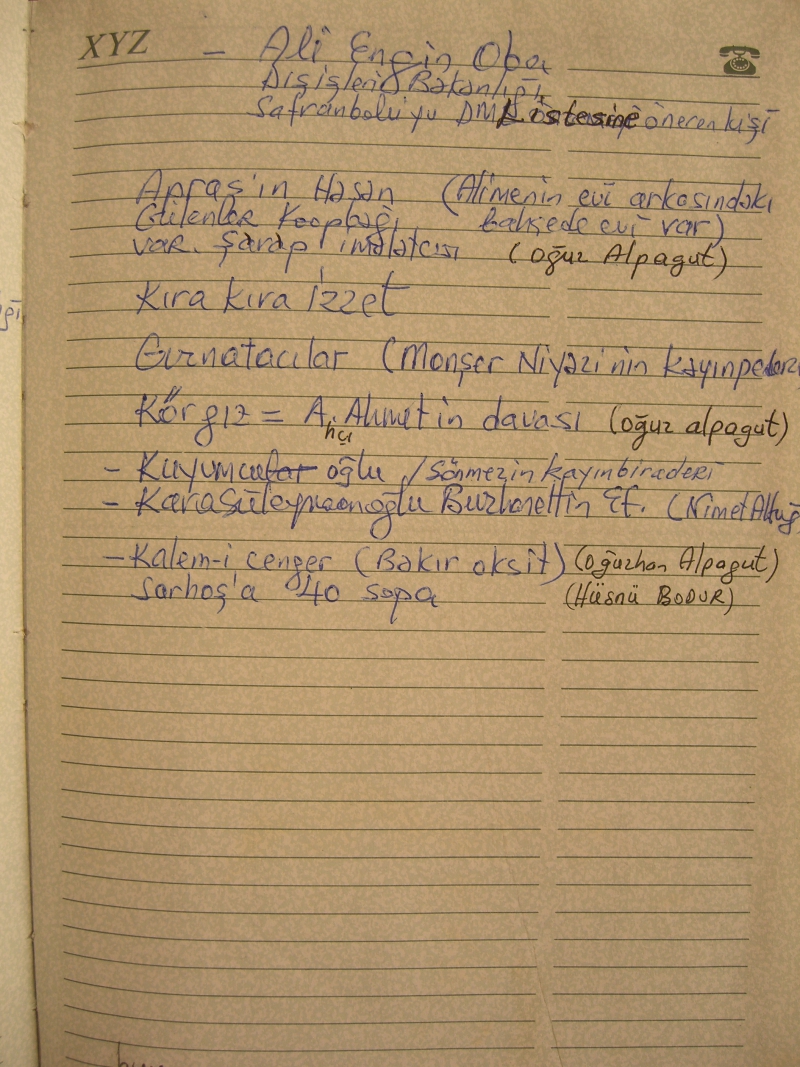 XYZ
- Ali Engin Oba
Dışişleri Bakanlığı
Safranbolu'yu DM Listesine öneren kişi
Apraş'ın Hasan (Alimenin evi arkasındaki
bahçede evi var)
var. Şarap imalatcısı (Oğuz Alpagut)
Kıra kıra İzzet
Gırnatacılar (Monşer Niyazi'nin kayınpederi
Körgız = Ahçı Ahmet'in davası (oğuz alpagut)
- Kuyumcu oğlu / Sönmezin kayınbiraderi
- Karasüleymanoğlu Burhanettin Ef. (Nimet Altuğ
- Kalem-i cenger (Bakır oksit) (Oğuzhan Alpagut)
Sarhoş'a 40 sopa (Hüsnü BODUR)